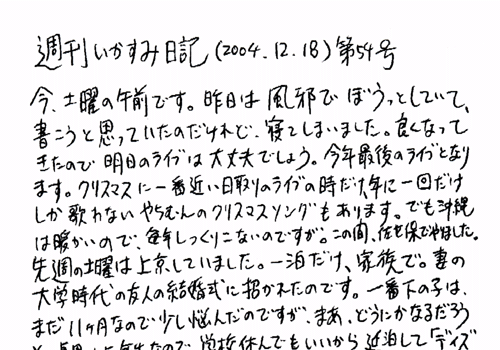 週刊いかすみ日記(2004.12.18)第54号
今、土曜の午前です。昨日は風邪でぼうっとしていて、
書こうと思っていたのだけれど、寝てしまいました。良くなって
きたので明日のライブは大丈夫でしょう。今年最後のライブとなり
ます。クリスマスに一番近い日取りのライブの時だけ年に一回だけ
しか歌わないやちむんのクリスマスソングもあります。でも沖縄
は暖かいので、毎年しっくりこないのですが。この間、佐世保でやりました。
先週の土曜は上京していました。一泊だけ、家族で。妻の
大学時代の友人の結婚式に招かれたのです。一番下の子は、
まだ11ヶ月なので少し悩んだのですが、まあ、どうにかなるだろう
年生なので、学校休んでもいいから、近泊して「ディズ